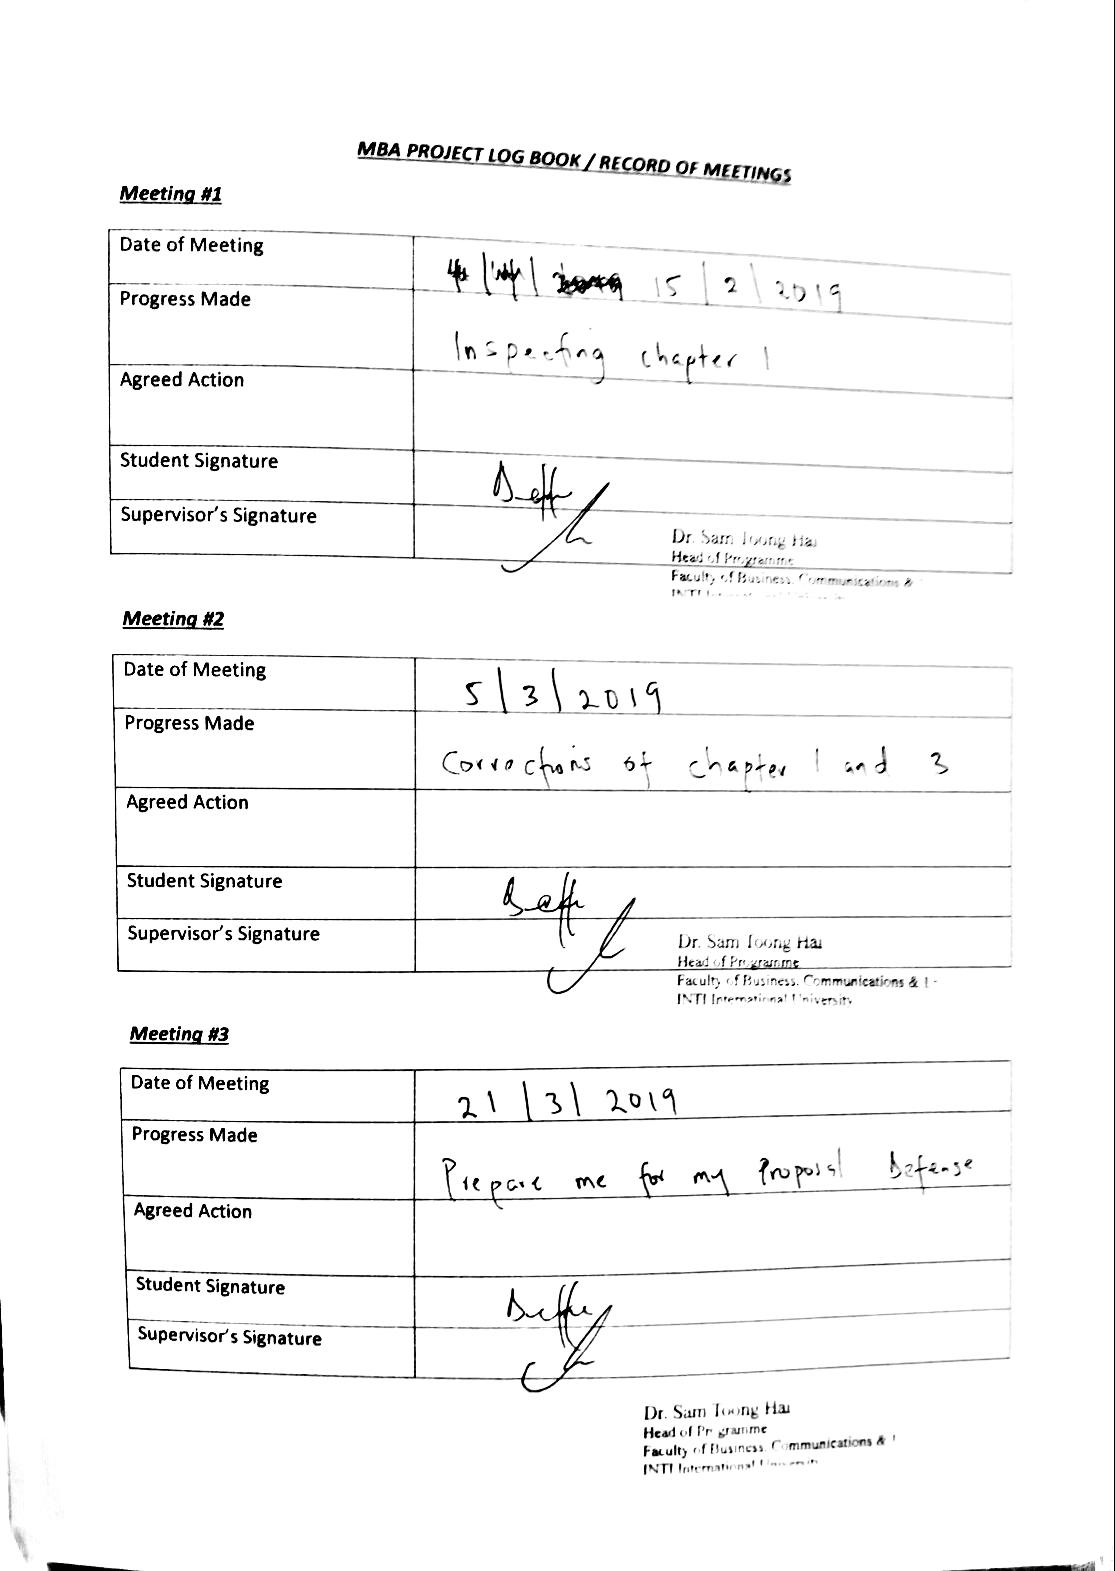 MBA PROJECT LOG BOOK / RECORD OF MEETINGS
Meeting #1
Date of Meeting
15 / 2 / 2019
Progress Made
Inspecting chapter 1
Agreed Action
Student Signature
Supervisor's Signature
Dr. Sam Toong Hai
Head of Programme
Faculty of Business, Communications &
Meeting #2
Date of Meeting
5 / 3 / 2019
Progress Made
Corrections of chapter 1 and 3
Agreed Action
Student Signature
Supervisor's Signature
Dr. Sam Toong Hai
Head of Programme
Faculty of Business, Communications &
INTI International University
Meeting #3
Date of Meeting
21 / 3 / 2019
Progress Made
Prepare me for my Proposal Defense
Agreed Action
Student Signature
Supervisor's Signature
Dr. Sam Toong Hai
Head of Programme
Faculty of Business, Communications &
INTI International University